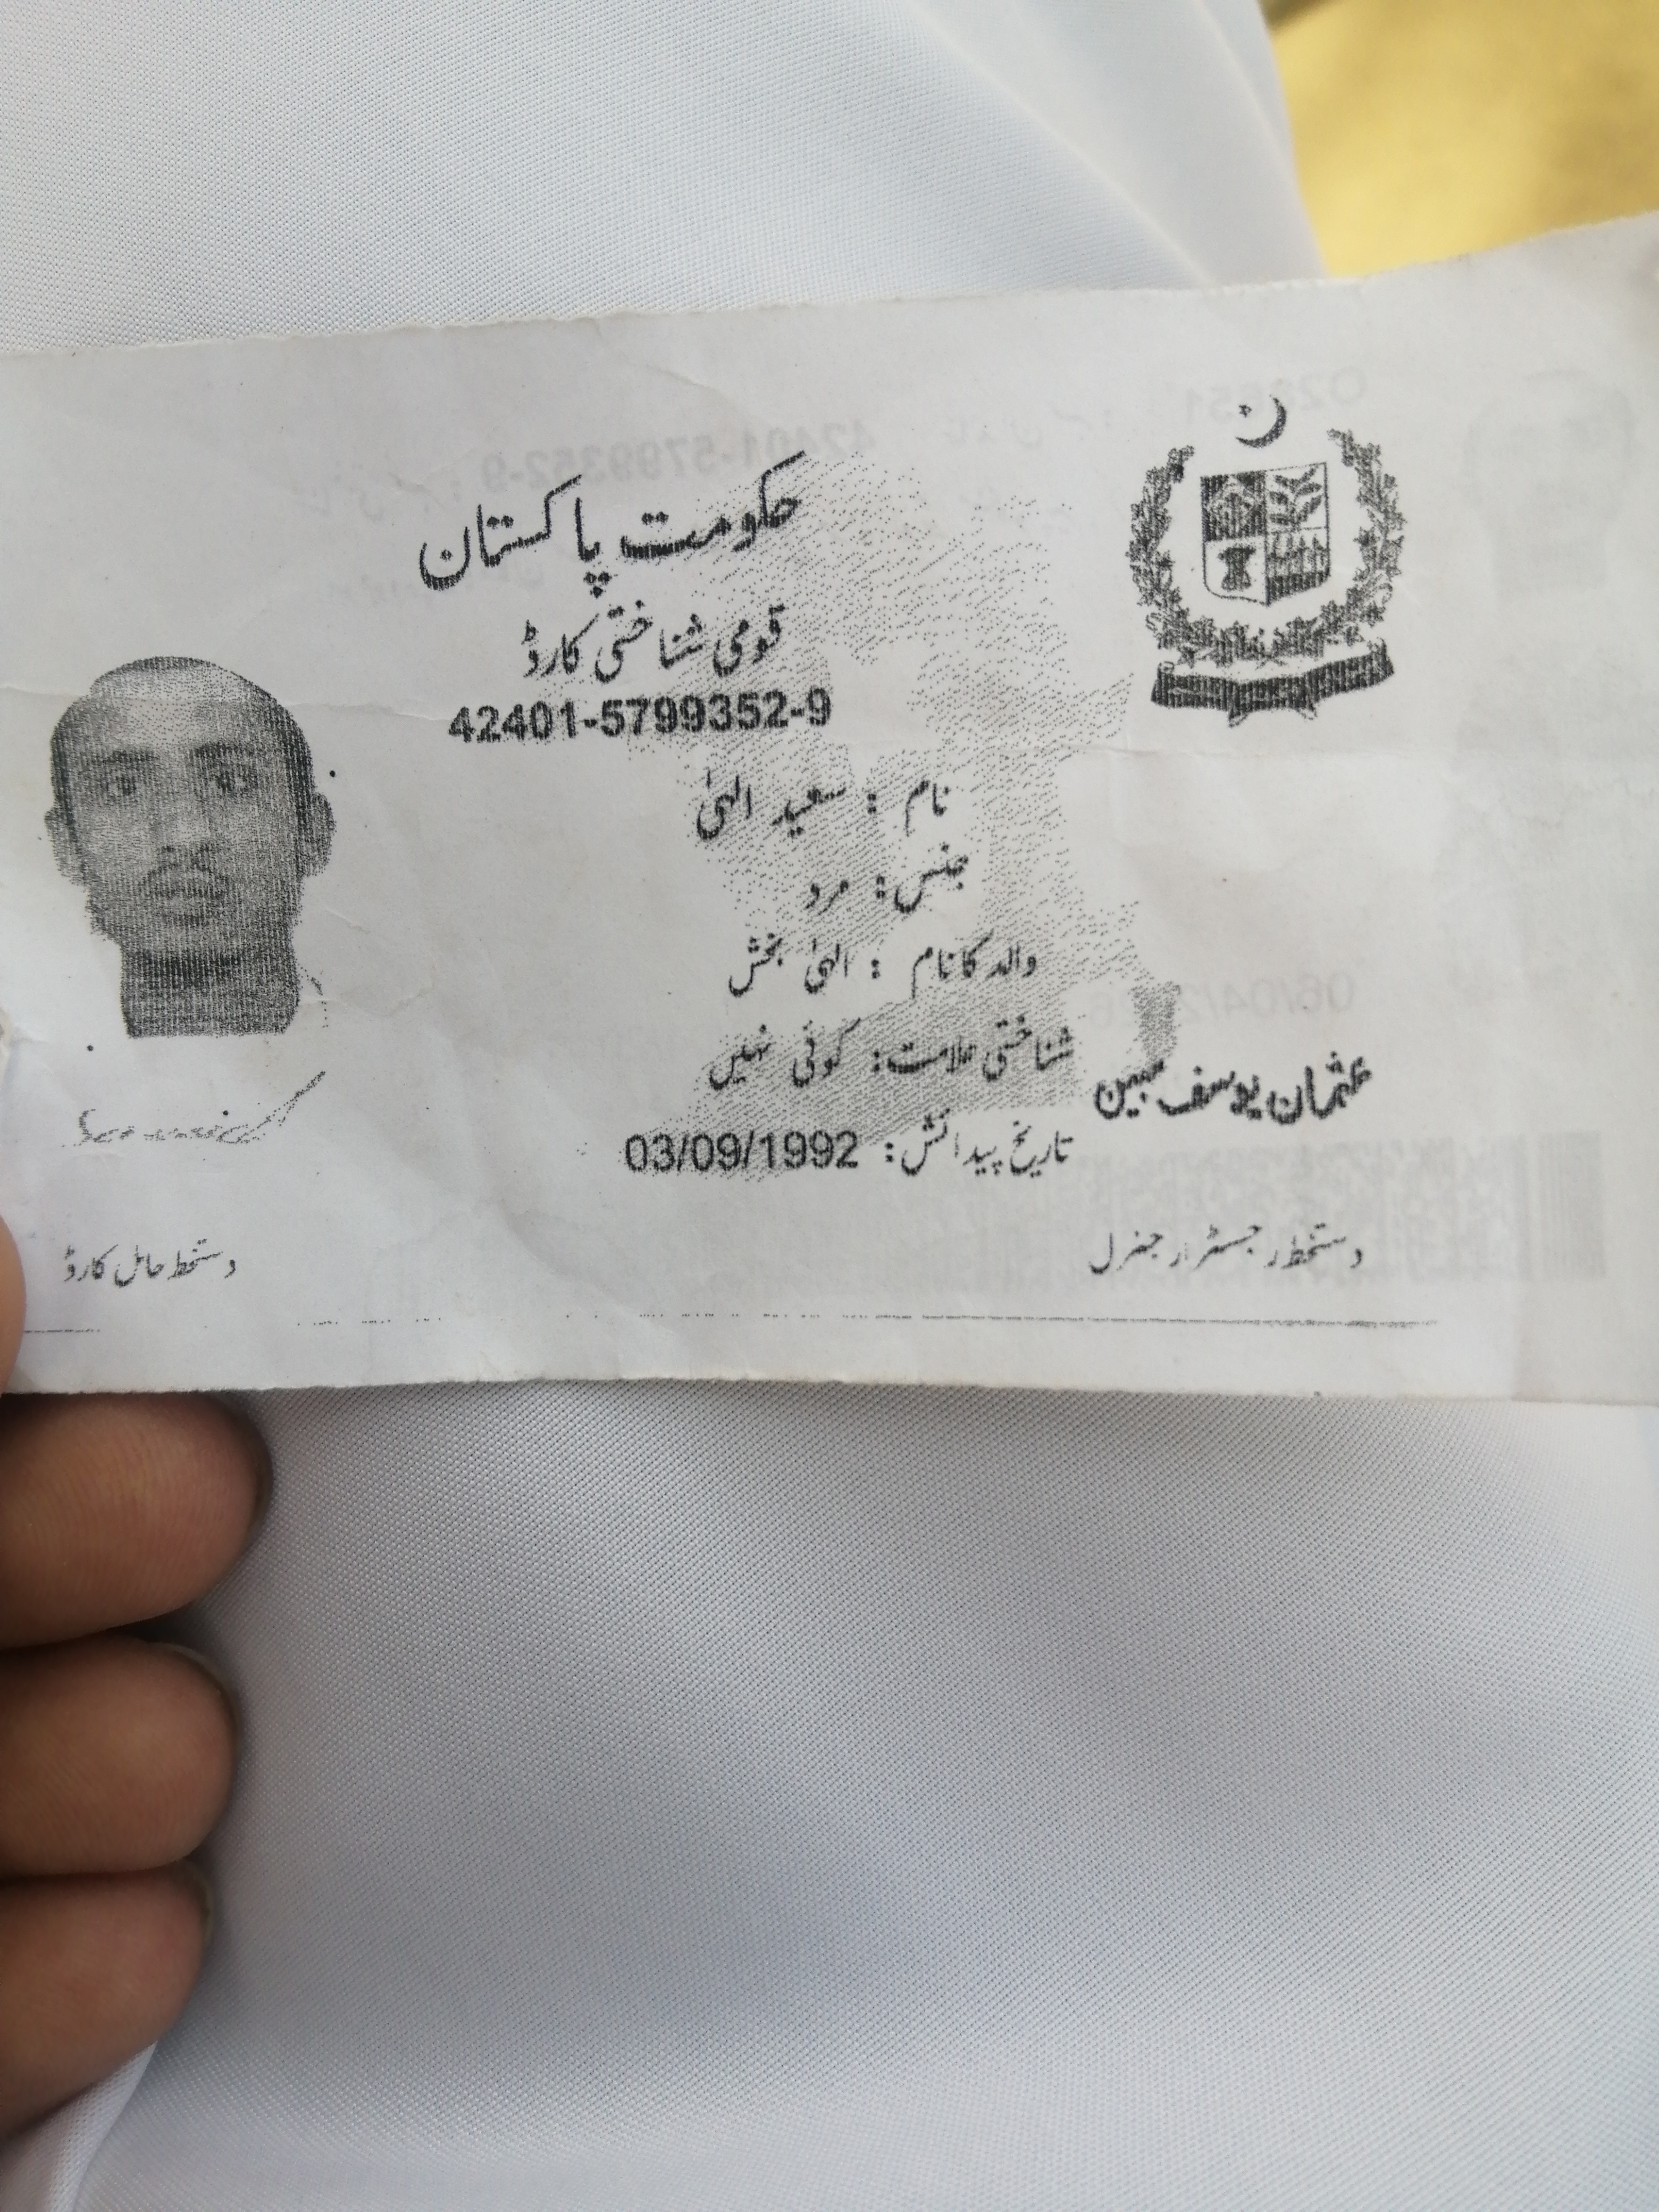 حکومت پاکستان
قومی شناختی کارڈ
42401-5799352-9
نام : سعید الہیٰ
جنس : مرد
والد کا نام : الہیٰ بخش
شناختی علامت: کوئی نہیں
عثمان یوسف مبین
تاریخ پیدائش: 03/09/1992
دستخط رجسٹرار جنرل
دستخط حامل کارڈ